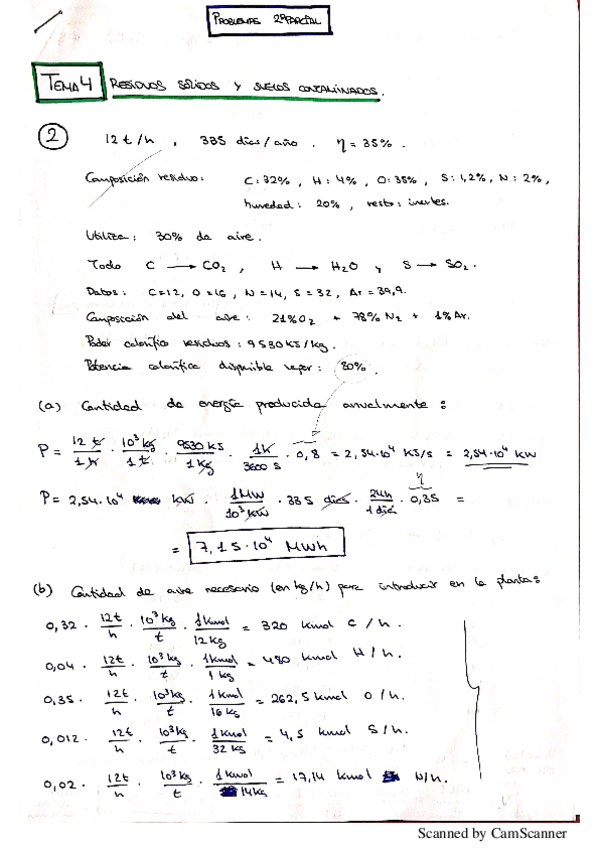 PROBLEMAS 2º PARCIAL
TEMA 4 RESIDUOS SÓLIDOS Y SUELOS CONTAMINADOS.
2 12 t/h , 335 días/año . η = 35% .
Composición residuo: C: 32% , H: 4% , O: 35% , S: 1,2% , N: 2% ,
humedad: 20% , resto: inertes.
Utiliza: 30% de aire.
Todo C → CO₂ , H → H₂O y S → SO₂.
Datos: C=12, O=16, N=14, S=32, Ar=39,9.
Composición del aire: 21% O₂ + 78% N₂ + 1% Ar.
Poder calorífico residuos: 9530 KJ/kg.
Potencia calorífica disponible vapor: 80%.
(a) Cantidad de energía producida anualmente:
P = 12 t/1 h · 10³ kg/1 t · 9530 KJ/1 kg · 1h/3600 s · 0,8 = 2,54·10⁴ KJ/s = 2,54·10⁴ KW
η
P = 2,54·10⁴ KW · 1 MW/10³ KW · 335 días · 24h/1 día · 0,35 =
= 7,15·10⁴ MWh
(b) Cantidad de aire necesario (en kg/h) para introducir en la planta:
0,32 · 12t/h · 10³ kg/t · 1 kmol/12 kg = 320 kmol C/h.
0,04 · 12t/h · 10³ kg/t · 1 kmol/1 kg = 480 kmol H/h.
0,35 · 12t/h · 10³ kg/t · 1 kmol/16 kg = 262,5 kmol O/h.
0,012 · 12t/h · 10³ kg/t · 1 kmol/32 kg = 4,5 kmol S/h.
0,02 · 12t/h · 10³ kg/t · 1 kmol/14 kg = 17,14 kmol N/h.
Scanned by CamScanner